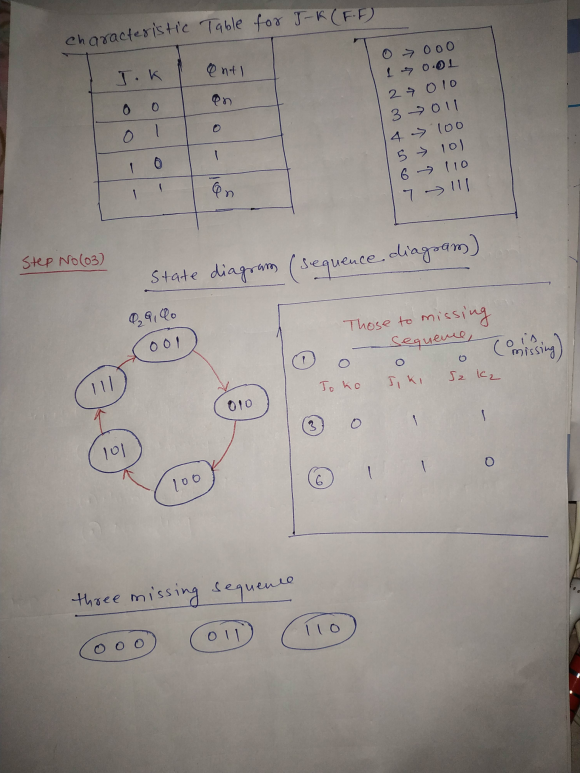 Characteristic Table for J-K (F.F)
J . K Qn+1
0 0 Qn
0 1 0
1 0 1
1 1 Q̅n
0 → 000
1 → 001
2 → 010
3 → 011
4 → 100
5 → 101
6 → 110
7 → 111
Step No(03)
State diagram (sequence diagram)
Q2Q1Q0
001
010
100
101
111
Those to missing
sequence,
① 0 0 0 (0 is missing)
J0 K0 J1 K1 J2 K2
③ 0 1 1
⑥ 1 1 0
three missing sequence
000 011 110